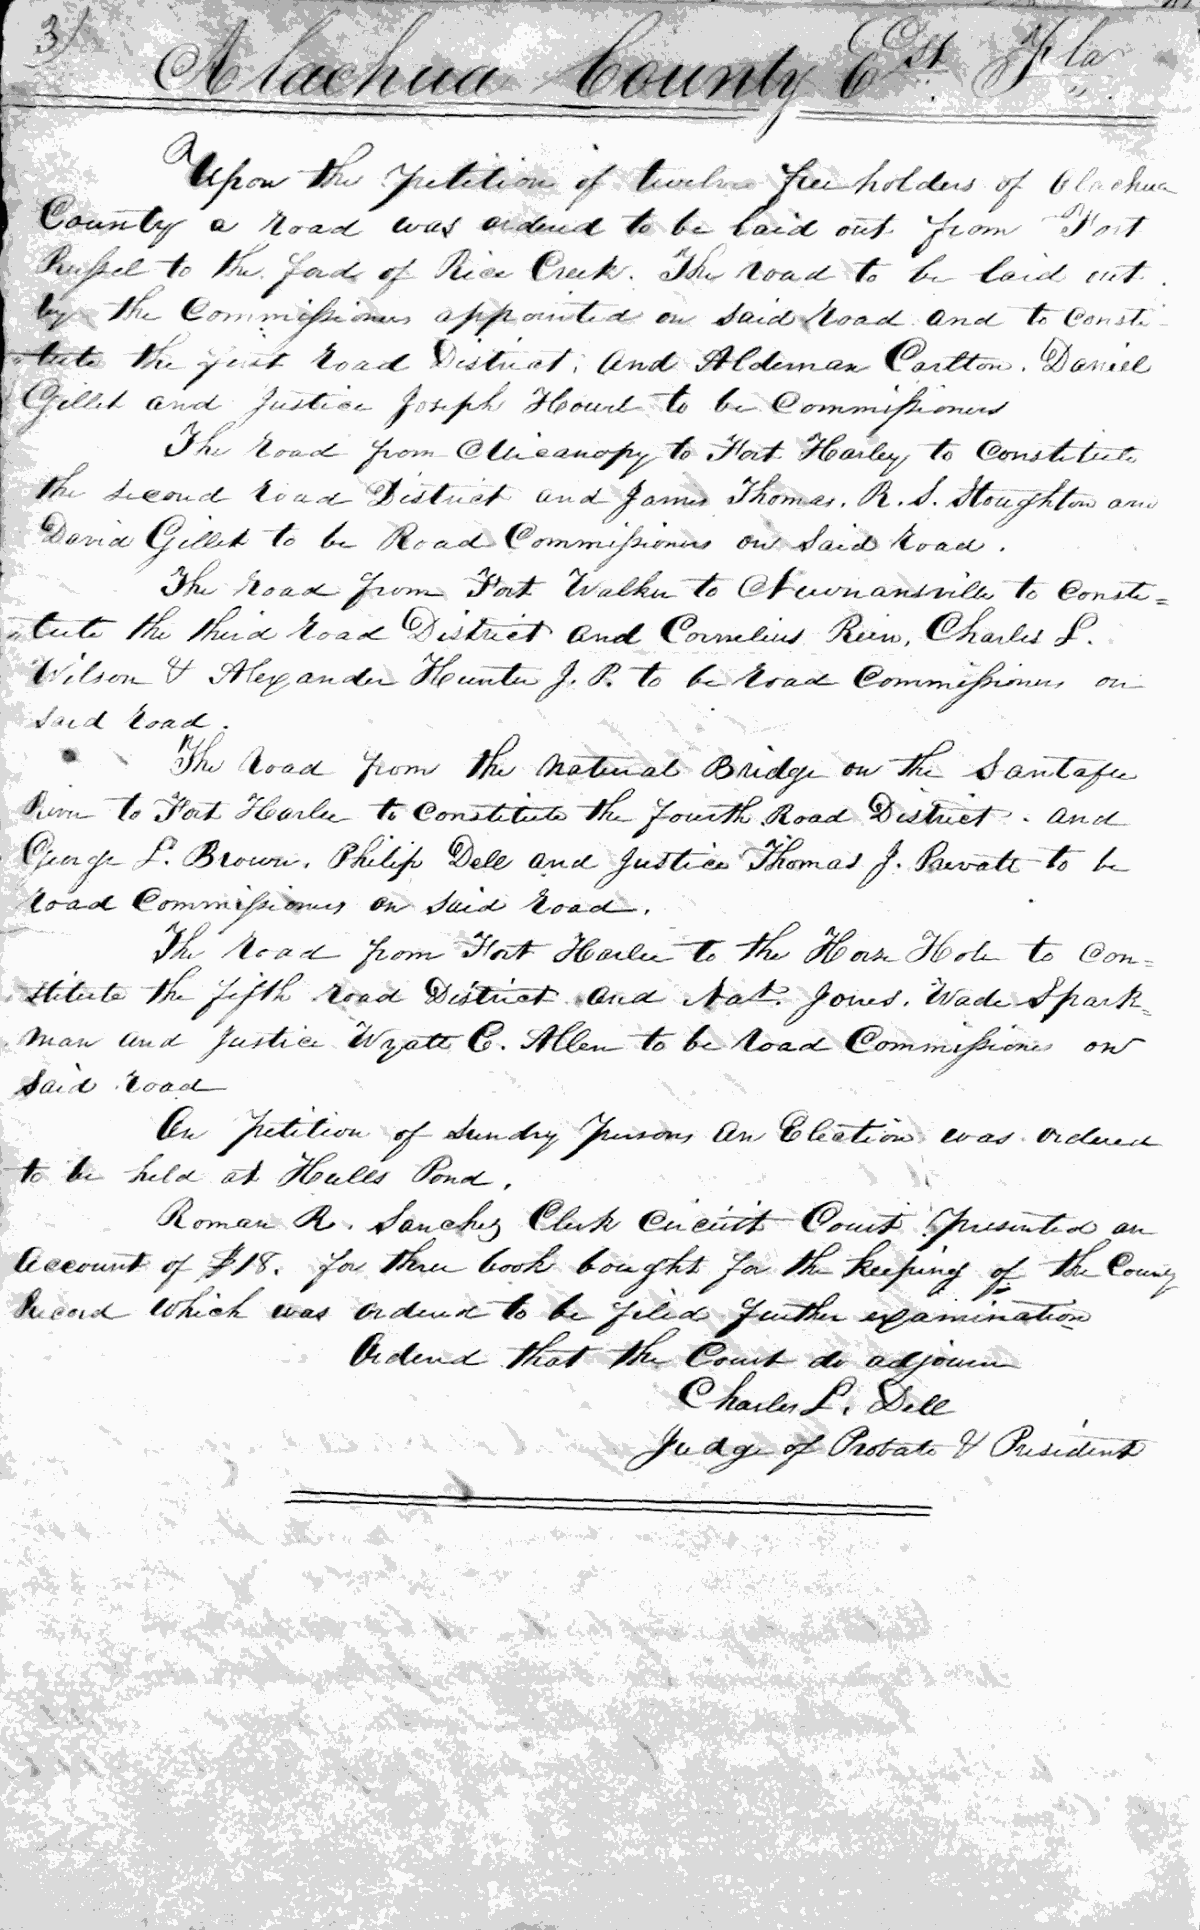 3)
Alachua County Est Fla
Upon the Petition of twelve free holders of Alachua
County a road was ordered to be laid out from Fort
Russel to the ford of Rice Creek. The road to be laid out
by the Commissioners appointed on said road and to consti-
tute the first road District, and Aldeman Carlton, Daniel
Gillet and Justice Joseph Hourt to be Commissioners
The road from Micanopy to Fort Harley to constitute
the second road District and James Thomas, R. S. Stoughton and
David Gillet to be Road Commissioners on said road.
The road from Fort Walker to Newnansville to consti=
tute the third road District and Cornelius Rein, Charles L.
Wilson & Alexander Hunter J. P. to be road Commissioners on
said road.
The road from the natural Bridge on the Santafee
River to Fort Harlee to constitute the fourth Road District. and
George L. Brown, Philip Dell and Justice Thomas J. Prevatt to be
road Commissioners on said road.
The road from Fort Harlee to the Horse Hole to con=
stitute the fifth road District and Nat. Jones, Wade Spark=
man and Justice Wyatt C. Allen to be road Commissioners on
said road
On petition of sundry persons an Election was ordered
to be held at Hulls Pond.
Roman R. Sanchez Clerk Circuit Court presented an
account of $18. for three book bought for the keeping of the County
Record which was ordered to be filed further examination
Ordered that the Court do adjourn
Charles L. Dell
Judge of Probate & President